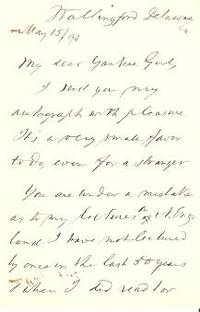 Wallingford Delaware
May 15/90
My dear Yankee Girl,
I send you my
autograph with pleasure
It's a very small favor
to do, even for a stranger
You are under a mistake
as to my lectures in N. Eng
land I have not lectured
but once in the last 50 years
& when I did